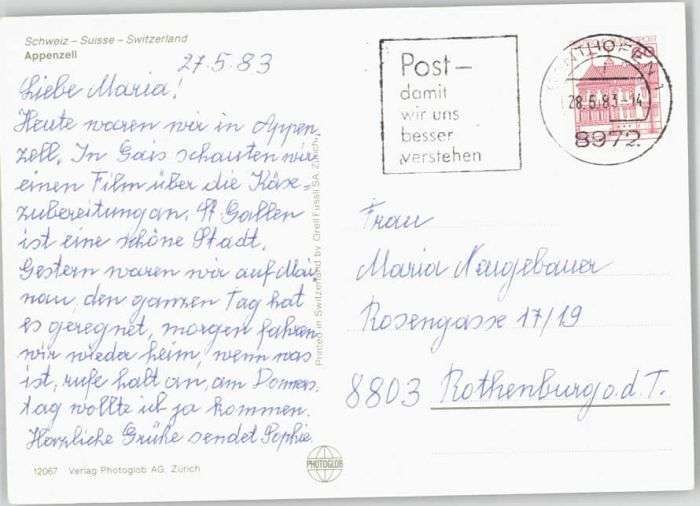 Schweiz – Suisse – Switzerland
Appenzell
27.5.83
Liebe Maria!
Heute waren wir in Appen
zell. In Gais schauten wir
einen Film über die Käse-
zubereitung an. St Gallen
ist eine schöne Stadt.
Gestern waren wir auf Mai
nau, den ganzen Tag hat
es geregnet, morgen fahren
wir wieder heim, wenn was
ist, rufe halt an, am Donners
tag wollte ich ja kommen.
Herzliche Grüße sendet Sophie.
12067 Verlag Photoglob AG, Zürich
PHOTOGLOB
Printed in Switzerland by Orell Füssli SA, Zürich
Post–
damit
wir uns
besser
verstehen
NTHOFEN 1
28.5.83-14
8972
Frau
Maria Neugebauer
Rosengasse 17/19
8803 Rothenburg o.d.T.